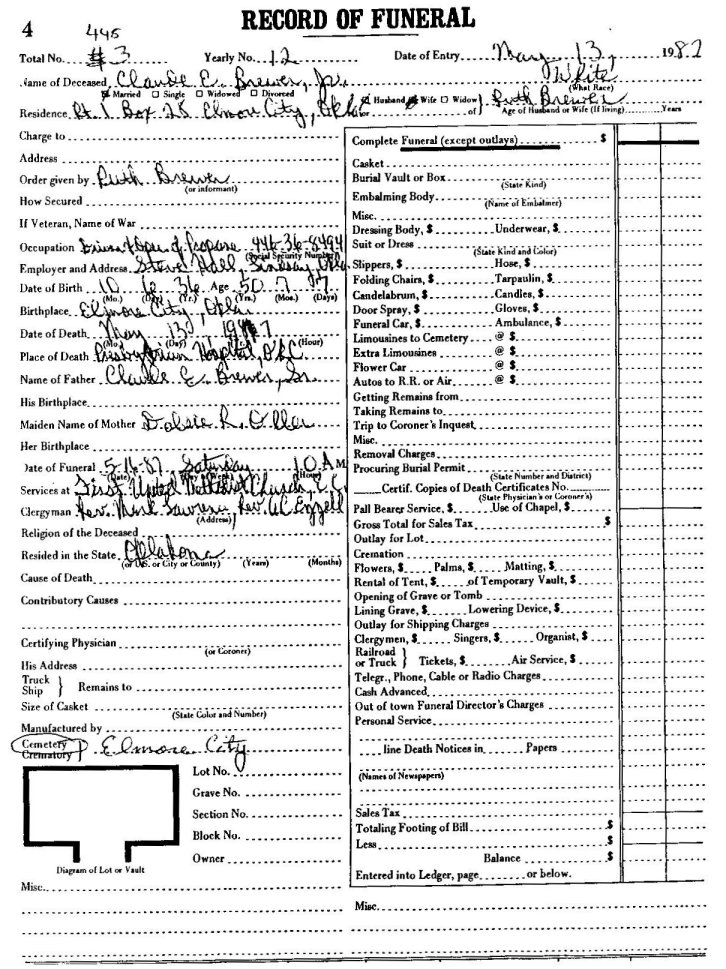 RECORD OF FUNERAL
4 445
Total No. #3 Yearly No. 12 Date of Entry May 13, 1987
Name of Deceased Claude E. Brewer, Jr. White (What Race)
Married Single Widowed Divorced Husband Wife Widow or of Ruth Brewer
Residence Rt. 1 Box 28 Elmore City, Okla. Age of Husband or Wife (If living) Years
Charge to
Address
Order given by Ruth Brewer
(or informant)
How Secured
If Veteran, Name of War
Occupation of Propane
(Social Security Number)
Employer and Address Steve Hall, Lindsay, Okla.
Date of Birth 10 6 36 Age 50 7 7
(Mo.) (Day) (Yr.) (Yrs.) (Mos.) (Days)
Birthplace Elmore City, Okla.
Date of Death May 13, 1987
(Mo.) (Day) (Yr.) (Hour)
Place of Death Presbyterian Hospital, OKC
Name of Father Claude E. Brewer, Sr.
His Birthplace
Maiden Name of Mother R.
Her Birthplace
Date of Funeral 5-16-87 Saturday 10 AM
(Date) (Day of Week) (Hour)
Services at First United Methodist Church, E.C.
Clergyman Rev. Mark Rev. Al Ezzell
(Address)
Religion of the Deceased
Resided in the State Oklahoma
(or U.S. or City or County) (Years) (Months)
Cause of Death
Contributory Causes
Certifying Physician
(or Coroner)
His Address
Truck
Ship } Remains to
Size of Casket
(State Color and Number)
Manufactured by
Cemetery
Crematory } Elmore City
Lot No.
Grave No.
Section No.
Block No.
Owner
Diagram of Lot or Vault
Misc.
Complete Funeral (except outlays) $
Casket
Burial Vault or Box
(State Kind)
Embalming Body
(Name of Embalmer)
Misc.
Dressing Body, $ Underwear, $
Suit or Dress
(State Kind and Color)
Slippers, $ Hose, $
Folding Chairs, $ Tarpaulin, $
Candelabrum, $ Candles, $
Door Spray, $ Gloves, $
Funeral Car, $ Ambulance, $
Limousines to Cemetery @ $
Extra Limousines @ $
Flower Car @ $
Autos to R.R. or Air @ $
Getting Remains from
Taking Remains to
Trip to Coroner's Inquest
Misc.
Removal Charges
Procuring Burial Permit
(State Number and District)
Certif. Copies of Death Certificates No.
(State Physician's or Coroner's)
Pall Bearer Service, $ Use of Chapel, $
Gross Total for Sales Tax $
Outlay for Lot
Cremation
Flowers, $ Palms, $ Matting, $
Rental of Tent, $ of Temporary Vault, $
Opening of Grave or Tomb
Lining Grave, $ Lowering Device, $
Outlay for Shipping Charges
Clergymen, $ Singers, $ Organist, $
Railroad
or Truck } Tickets, $ Air Service, $
Telegr., Phone, Cable or Radio Charges
Cash Advanced
Out of town Funeral Director's Charges
Personal Service
line Death Notices in Papers
(Names of Newspapers)
Sales Tax
Totaling Footing of Bill $
Less $
Balance $
Entered into Ledger, page or below.
Misc.